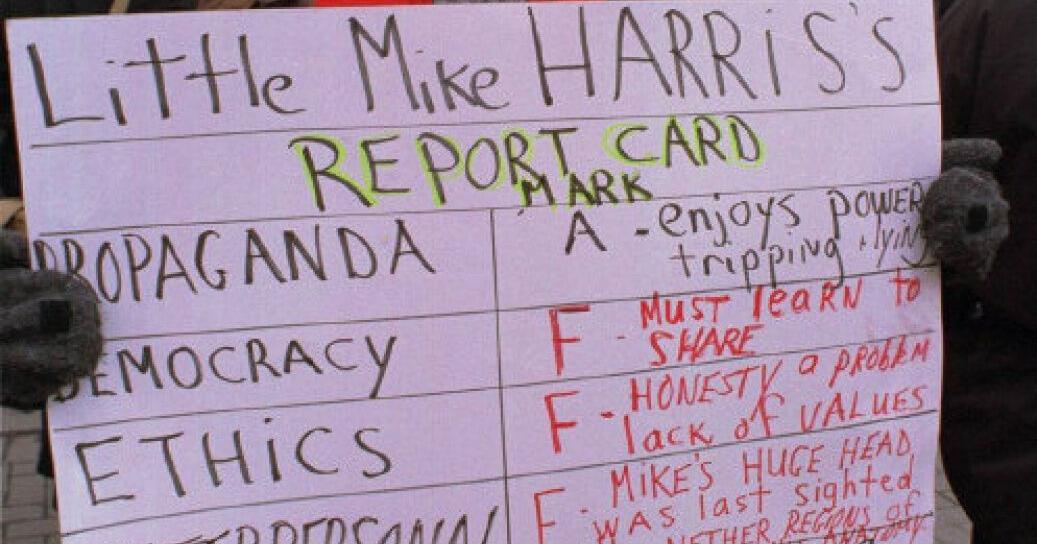 Little Mike HARRiS'S
REPORT CARD
MARK
PROPAGANDA
A - enjoys POWER
tripping + lying
DEMOCRACY
F - MUST learN to
SHARE
ETHiCS
F - HONESTY a PROBlEM
lack of VALUES
F - MiKE'S HUGE HEAD
WAS last sighted
NETHER REGIONS of